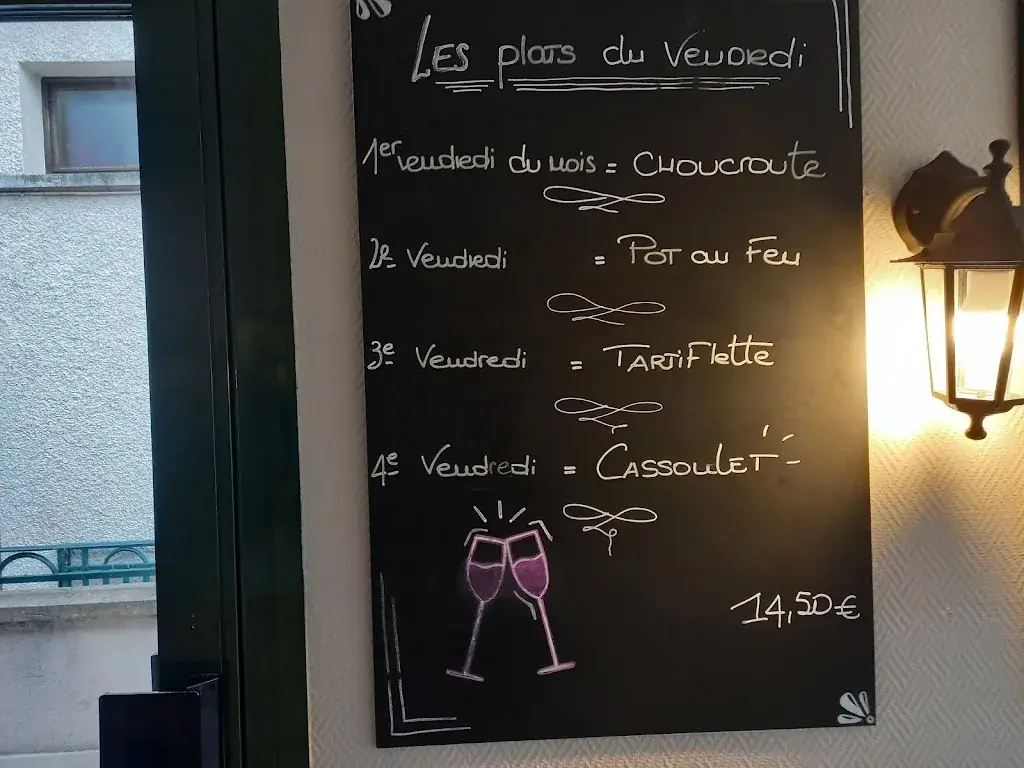 LES plats du Vendredi
1er vendredi du mois = CHOUCROUTE
2e Vendredi = POT au Feu
3e Vendredi = TARTIFLETTE
4e Vendredi = CASSOULET
14,50€